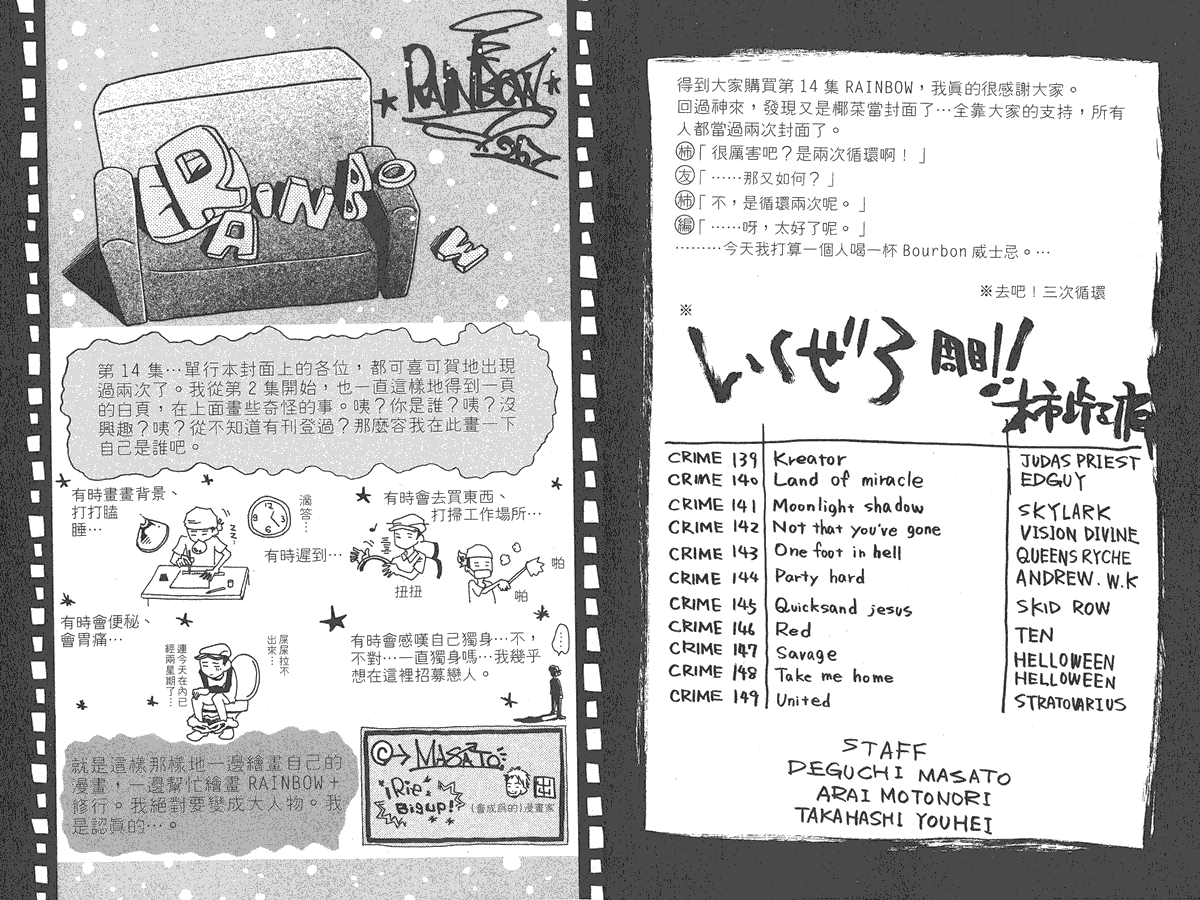 RAINBOW
RAINBOW
第14集…單行本封面上的各位，都可喜可賀地出現
過兩次了。我從第2集開始，也一直這樣地得到一頁
的白頁，在上面畫些奇怪的事。咦？你是誰？咦？沒
興趣？咦？從不知道有刊登過？那麼容我在此畫一下
自己是誰吧。
有時畫畫背景、
打打瞌
睡…
滴答…
有時遲到…
有時會去買東西、
打掃工作場所…
扭扭
啪
啪
有時會便秘、
會胃痛…
屎屎拉不
出來…
連今天在內已
經兩星期了…
有時會感嘆自己獨身…不，
不對…一直獨身嗎…我幾乎
想在這裡招募戀人。
就是這樣那樣地一邊繪畫自己的
漫畫，一邊幫忙繪畫 RAINBOW＋
修行。我絕對要變成大人物。我
是認真的…。
MASATO
iRie
Big up!
出
(會成為的)漫畫家
得到大家購買第14集 RAINBOW，我真的很感謝大家。
回過神來，發現又是椰菜當封面了…全靠大家的支持，所有
人都當過兩次封面了。
柿「很厲害吧？是兩次循環啊！」
友「……那又如何？」
柿「不，是循環兩次呢。」
編「……呀，太好了呢。」
………今天我打算一個人喝一杯 Bourbon 威士忌。…
※去吧！三次循環
※
いくぜ３周目!!
柿崎正澄
CRIME 139 Kreator JUDAS PRIEST
CRIME 140 Land of miracle EDGUY
CRIME 141 Moonlight shadow SKYLARK
CRIME 142 Not that you've gone VISION DIVINE
CRIME 143 One foot in hell QUEENS RYCHE
CRIME 144 Party hard ANDREW. W.K
CRIME 145 Quicksand jesus SKID ROW
CRIME 146 Red TEN
CRIME 147 Savage HELLOWEEN
CRIME 148 Take me home HELLOWEEN
CRIME 149 United STRATOVARIUS
STAFF
DEGUCHI MASATO
ARAI MOTONORI
TAKAHASHI YOUHEI